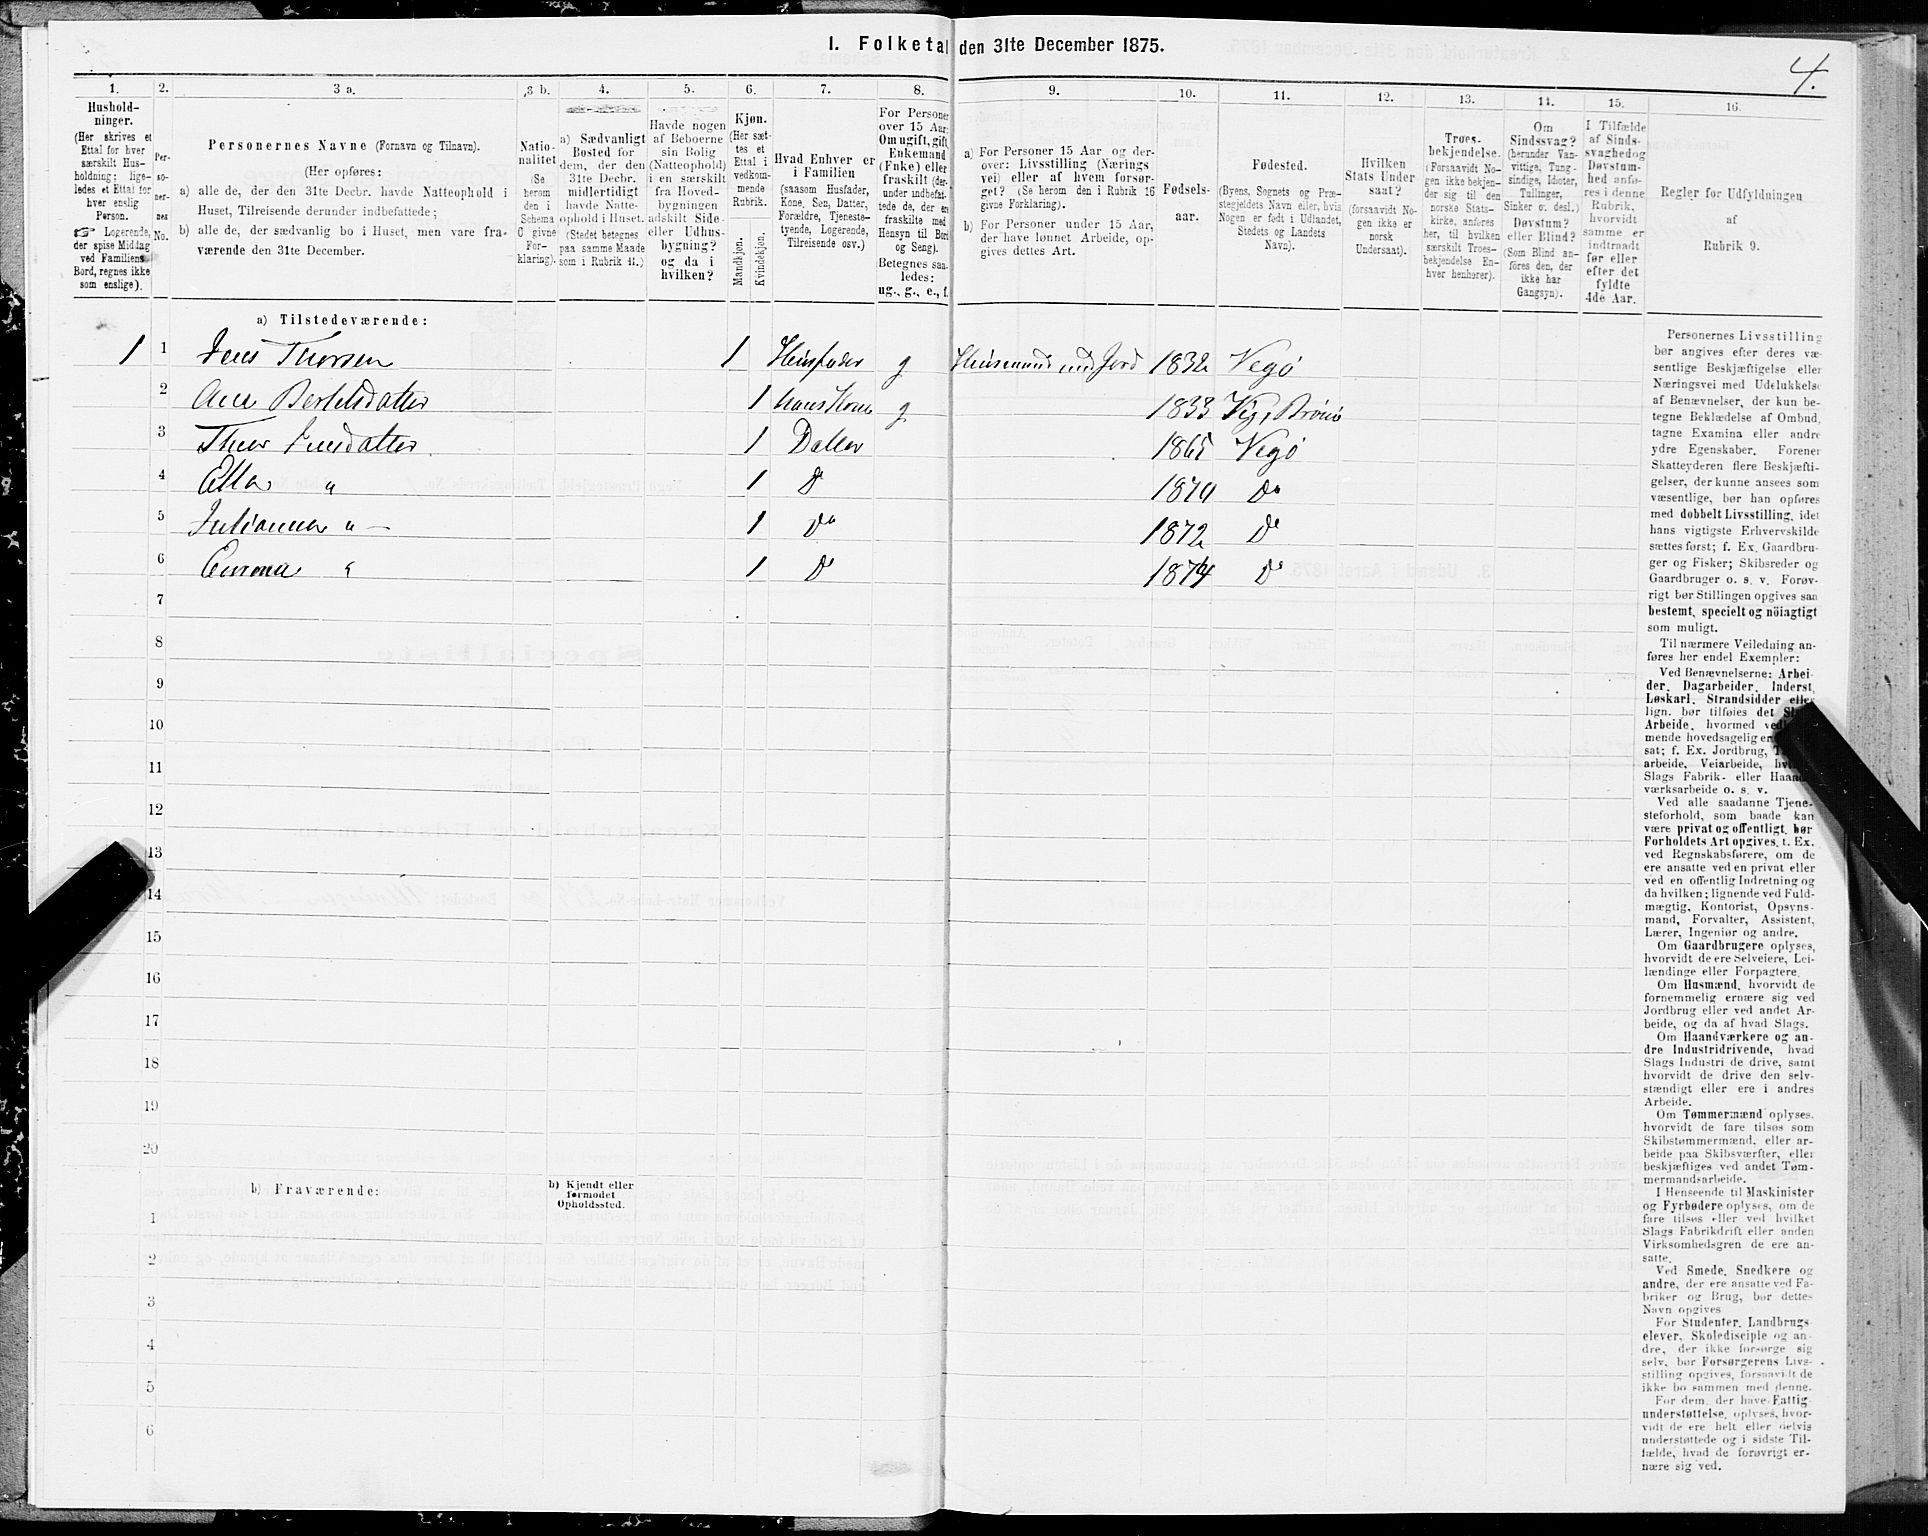 I. Folketal den 31te December 1875.
4.
1.
Hushold-
ninger.
(Her skrives et
Ettal for hver
særskilt Hus-
holdning; lige-
ledes et Ettal for
hver enslig
Person.
☞ Logerende,
der spise Middag
ved Familiens
Bord, regnes ikke
som enslige).
2.
Per-
so-
ner-
nes
No.
3 a.
Personernes Navne (Fornavn og Tilnavn).
(Her opføres:
a) alle de, der den 31te Decbr. havde Natteophold i
Huset, Tilreisende derunder indbefattede;
b) alle de, der sædvanlig bo i Huset, men vare fra-
værende den 31te December.
3 b.
Natio-
nalitet
(Se
herom
den i
Schema
C givne
For-
klaring).
4.
a) Sædvanligt
Bosted for
dem, der den
31te Decbr.
midlertidigt
havde Natte-
ophold i Huset.
(Stedet betegnes
paa samme Maade
som i Rubrik 11.)
5.
Havde nogen
af Beboerne
sin Bolig
(Natteophold)
i en særskilt
fra Hoved-
bygningen
adskilt Side-
eller Udhus-
bygning?
og da i
hvilken?
6.
Kjøn.
(Her sæt-
tes et
Ettal i
vedkom-
mende
Rubrik.
Mandkjøn.
Kvindekjøn.
7.
Hvad Enhver er
i Familien
(saasom Husfader,
Kone, Søn, Datter,
Forældre, Tjeneste-
tyende, Logerende,
Tilreisende osv.)
8.
For Personer
over 15 Aar:
Om ugift, gift,
Enkemand
(Enke) eller
fraskilt (der-
under indbefat-
tede de, der er
fraskilte med
Hensyn til Bord
og Seng).
Betegnes saa-
ledes:
ug., g., e., f.
9.
a) For Personer 15 Aar og der-
over: Livsstilling (Nærings
vei) eller af hvem forsør-
get? (Se herom den i Rubrik 16
givne Forklaring).
b) For Personer under 15 Aar,
der have lønnet Arbeide, op-
gives dettes Art.
10.
Fødsels-
aar.
11.
Fødested.
(Byens, Sognets og Præ-
stegjeldets Navn eller, hvis
Nogen er født i Udlandet,
Stedets og Landets
Navn).
12.
Hvilken
Stats Under
saat?
(forsaavidt No-
gen ikke er
norsk
Undersaat).
13.
Troes-
bekjendelse.
(Forsaavidt No-
gen ikke bekjen-
der sig til den
norske Stats-
kirke, anføres
her, til hvilken
særskilt Troes-
bekjendelse En-
hver henhører).
14.
Om
Sindssvag?
(herunder Van-
vittige, Tung-
sindige, Idioter,
Tullinger,
Sinker o. desl.)
Døvstum?
eller Blind?
(Som Blind an-
føres den, der
ikke har
Gangsyn).
15.
I Tilfælde
af Sinds-
svaghed og
Døvstum-
hed anfø-
res i denne
Rubrik,
hvorvidt
samme er
indtraadt
før eller
efter det
fyldte
4de Aar.
16.
Regler for Udfyldningen
af
Rubrik 9.
a) Tilstedeværende:
1 1 Jens Thorsen 1 Husfader g Husmand med Jord 1832 Vegø
2 Ane Bertelsdatter 1 hans Kone g 1833 Brønø
3 Jensdatter 1 Datter 1865 Vegø
4 " 1 Do 1870 Do
5 Julianna " — 1 Do 1872 Do
6 Emma " 1 Do 1874 Do
7
8
9
10
11
12
13
14
15
16
17
18
19
20
b) Fraværende:
b) Kjendt eller
formodet
Opholdssted.
1
2
3
4
5
6
Personernes Livsstilling
bør angives efter deres væ-
sentlige Beskjæftigelse eller
Næringsvei med Udelukkelse
af Benævnelser, der kun be-
tegne Beklædelse af Ombud,
tagne Examina eller andre
ydre Egenskaber. Forener
Skatteyderen flere Beskjæfti-
gelser, der kunne ansees som
væsentlige, bør han opføres
med dobbelt Livsstilling, idet
hans vigtigste Erhvervskilde
sættes først; f. Ex. Gaardbru-
ger og Fisker; Skibsreder og
Gaardbruger o. s. v. Forøv-
rigt bør Stillingen opgives saa
bestemt, specielt og nöiagtigt
som muligt.
Til nærmere Veiledning an-
føres her endel Exempler:
Ved Benævnelserne: Arbei-
der, Dagarbeider, Inderst,
Løskarl, Strandsidder eller
lign. bør tilføies det
Arbeide, hvormed
mende hovedsagelig er
sat; f. Ex. Jordbrug,
arbeide, Veiarbeide,
Slags Fabrik- eller
værksarbeide o. s. v.
Ved alle saadanne Tjene-
steforhold, som baade kan
være privat og offentligt, bør
Forholdets Art opgives, t. Ex.
ved Regnskabsførere, om de
ere ansatte ved en privat eller
ved en offentlig Indretning og
da hvilken; lignende ved Fuld-
mægtig, Kontorist, Opsyns-
mand, Forvalter, Assistent,
Lærer, Ingeniør og andre.
Om Gaardbrugere oplyses,
hvorvidt de ere Selveiere, Lei-
lændinge eller Forpagtere.
Om Husmænd, hvorvidt de
fornemmelig ernære sig ved
Jordbrug eller ved andet Ar-
beide, og da af hvad Slags.
Om Haandværkere og an-
dre Industridrivende, hvad
Slags Industri de drive, samt
hvorvidt de drive den selv-
stændigt eller ere i andres
Arbeide.
Om Tømmermænd oplyses,
hvorvidt de fare tilsøs som
Skibstømmermænd, eller ar-
beide paa Skibsværfter, eller
beskjæftiges ved andet Tøm-
mermandsarbeide.
I Henseende til Maskinister
og Fyrbødere oplyses, om de
fare tilsøs eller ved hvilket
Slags Fabrikdrift eller anden
Virksomhedsgren de ere an-
satte.
Ved Smede, Snedkere og
andre, der ere ansatte ved Fa-
briker og Brug, bør dettes
Navn opgives
For Studenter, Landbrugs-
elever, Skoledisciple og an-
dre, der ikke forsørge sig
selv, bør Forsørgerens Livs-
stilling opgives, forsaavidt de
ikke bo sammen med denne.
For dem, der have Fattig-
understøttelse, oplyses, hvor-
vidt de ere helt eller delvis
understøttede og i sidste Til-
fælde, hvad de forøvrigt er-
nære sig ved.